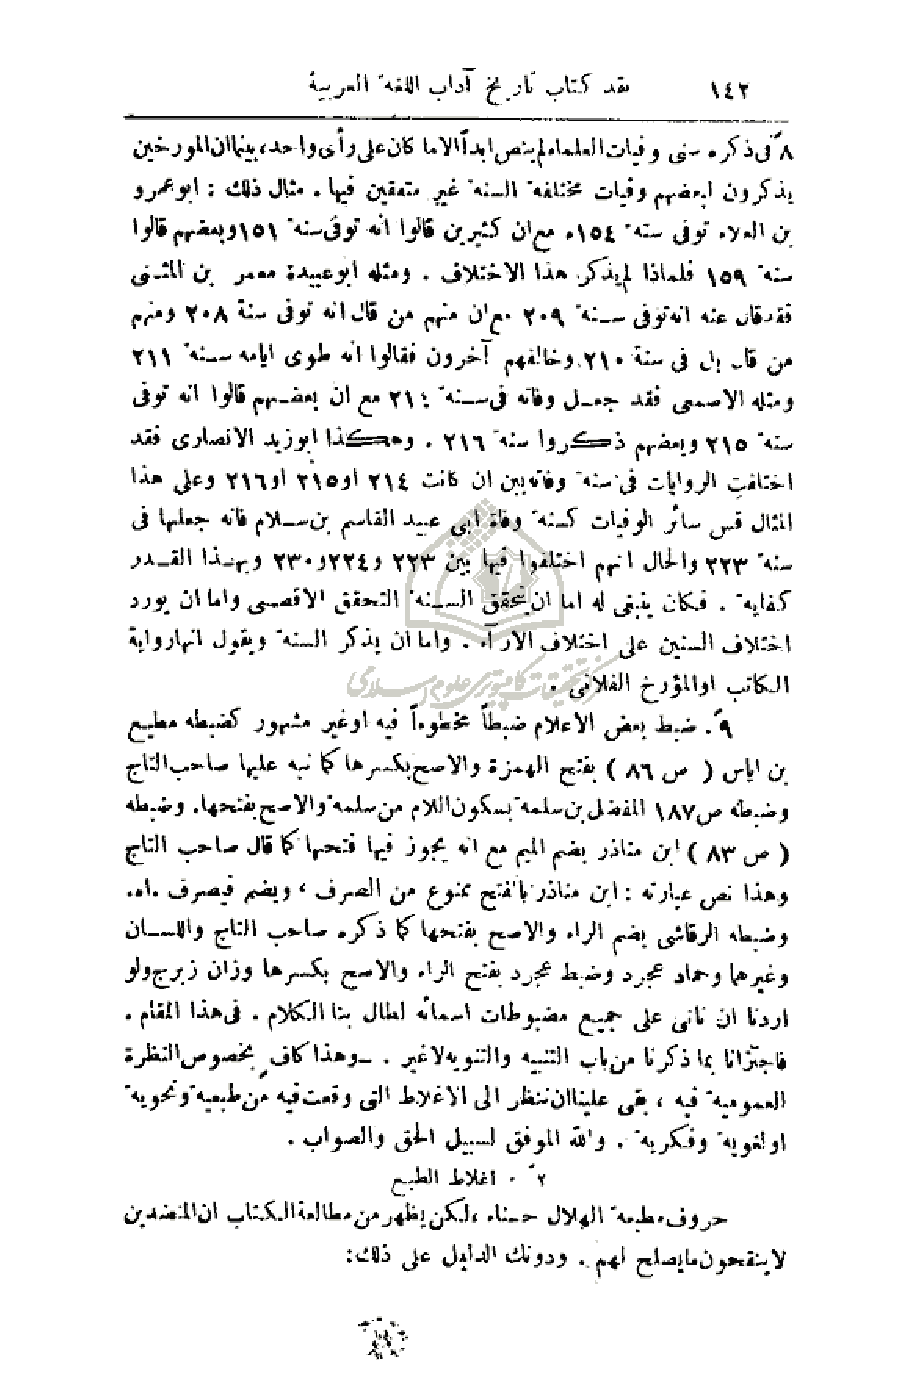 ١٤٢ نقد كتاب تاريخ آداب اللغة العربية
٨ً في ذكره سني وفيات العلماء لم ينص ابداً الا ما كان على رأي واحد، بينما ان المورخين
يذكرون لبعضهم وفيات مختلفة السنة غير متفقين فيها . مثال ذلك : ابو عمرو
بن العلاء توفي سنة ١٥٤ه مع ان كثيرين قالوا انه توفي سنة ١٥١ وبعضهم قالوا
سنة ١٥٩ فلماذا لم يذكر هذا الاختلاف . ومثله ابو عبيدة معمر بن المثنى
فقد قال عنه انه توفي سنة ٢٠٩ مع ان منهم من قال انه توفي سنة ٢٠٨ ومنهم
من قال بل في سنة ٢١٠ وخالفهم آخرون فقالوا انه طوى ايامه سنة ٢١١
ومثله الاصمعي فقد جعل وفاته في سنة ٢١٤ مع ان بعضهم قالوا انه توفي
سنة ٢١٥ وبعضهم ذكروا سنة ٢١٦ . وهكذا ابو زيد الانصاري فقد
اختلفت الروايات في سنة وفاته بين ان كانت ٢١٤ او ٢١٥ او ٢١٦ وعلى هذا
المثال قس سائر الوفيات كسنة وفاة ابي عبيد القاسم بن سلام فانه جعلها في
سنة ٢٢٣ والحال انهم اختلفوا فيها بين ٢٢٣ و٢٢٤ و٢٣٠ وبهذا القدر
كفاية . فكان ينبغي له اما ان يحقق السنة التحقق الاقصى واما ان يورد
اختلاف السنين على اختلاف الارآء . واما ان يذكر السنة ويقول انها رواية
الكاتب او المؤرخ الفلاني .
٩ً . ضبط بعض الاعلام ضبطاً مخطوءاً فيه او غير مشهور كضبطه مطيع
بن اياس ( ص ٨٦ ) بفتح الهمزة والاصح بكسرها كما نبه عليها صاحب التاج
وضبطه ص ١٨٧ المفضل بن سلمة بسكون اللام من سلمة والاصح بفتحها. وضبطه
( ص ٨٣ ) ابن مناذر بضم الميم مع انه يجوز فيها فتحها كما قال صاحب التاج
وهذا نص عبارته : ابن مناذر بالفتح ممنوع من الصرف ، ويضم فيصرف .اه.
وضبطه الرقاشي بضم الراء والاصح بفتحها كما ذكره صاحب التاج واللسان
وغيرهما وحماد عجرد وضبط عجرد بفتح الراء والاصح بكسرها وزان زبرج ولو
اردنا ان ناتي على جميع مضبوطات اسمائه لطال بنا الكلام . في هذا المقام .
فاجتزانا بما ذكرنا من باب التنبيه والتنويه لا غير . ــ وهذا كافٍ بخصوص النظرة
العمومية فيه ، بقى علينا ان ننظر الى الاغلاط التي وقعت فيه من طبعية ونحوية
او لغوية وفكرية . والله الموفق لسبيل الحق والصواب .
٢ً . اغلاط الطبع
حروف مطبعة الهلال حسناء ،لكن يظهر من مطالعة الكتاب ان المنضدين
لا ينقحون ما يصلح لهم . ودونك الدليل على ذلك:
مركز تحقيقات كامپيوترى علوم اسلامى